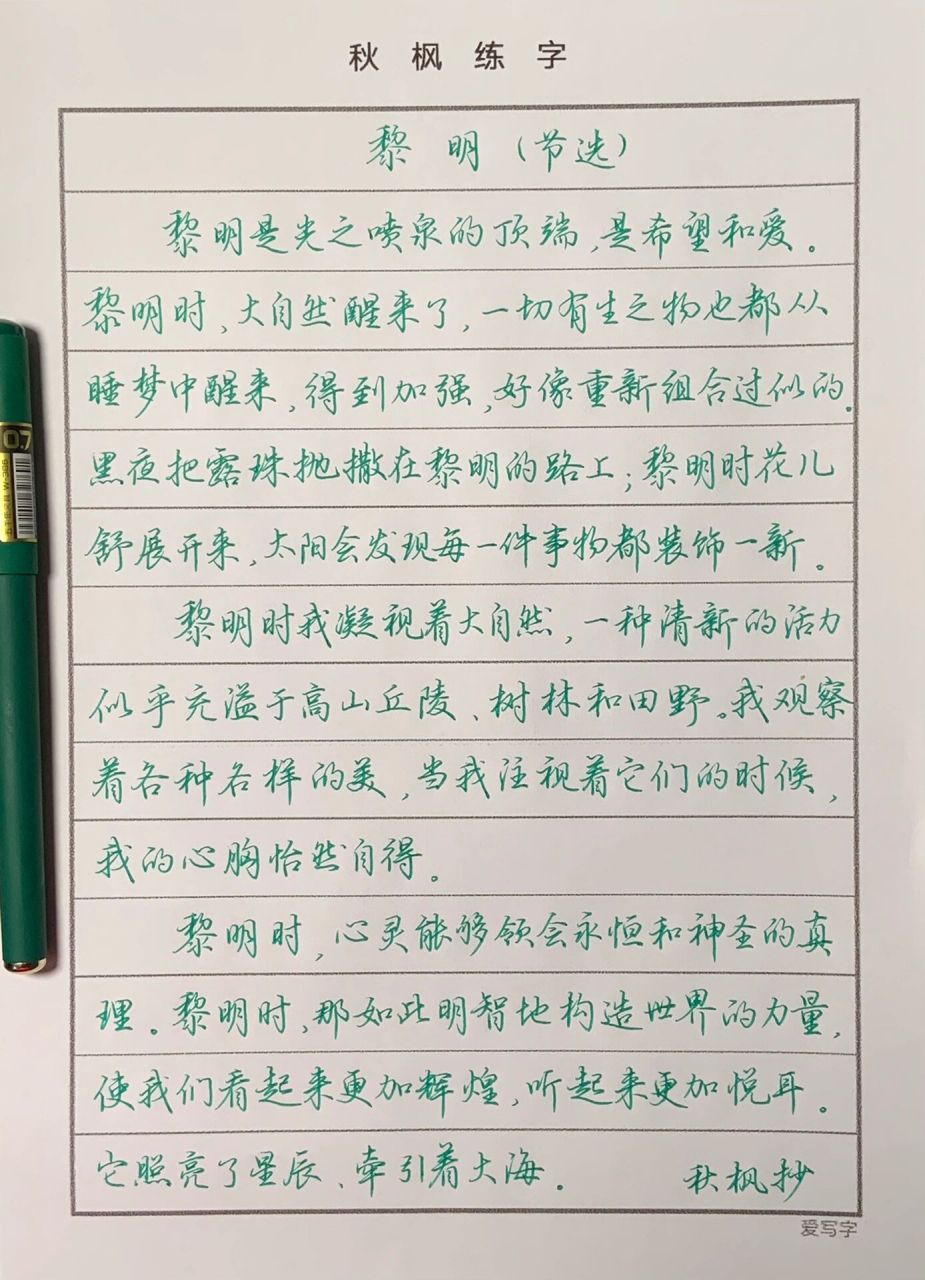 秋枫练字
黎明（节选）
黎明是光之喷泉的顶端，是希望和爱。
黎明时，大自然醒来了，一切有生之物也都从
睡梦中醒来，得到加强，好像重新组合过似的。
黑夜把露珠抛撒在黎明的路上；黎明时花儿
舒展开来，太阳会发现每一件事物都装饰一新。
黎明时我凝视着大自然，一种清新的活力
似乎充溢于高山丘陵、树林和田野。我观察
着各种各样的美，当我注视着它们的时候，
我的心胸怡然自得。
黎明时，心灵能够领会永恒和神圣的真
理。黎明时，那如此明智地构造世界的力量，
使我们看起来更加辉煌，听起来更加悦耳。
它照亮了星辰、牵引着大海。 秋枫抄
爱写字
0.7